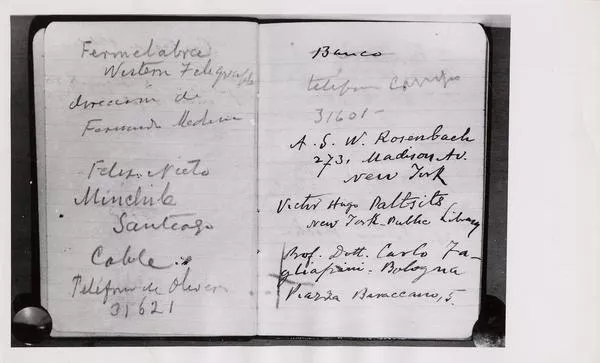 Fermelabrea
Western Telegraph
dirección de
Fernando Medina
Felix Nieto
Minchile
Santiago
Cable
Teléfono de Oliver
31621
Banco
teléfono
31601-
A. S. W. Rosenbach
273, Madison Av.
New York
Victor Hugo Paltsits
New York-Public Library
Prof. Dott. Carlo Fa-
gliafini. Bologna
Piazza Baraccano, 5.